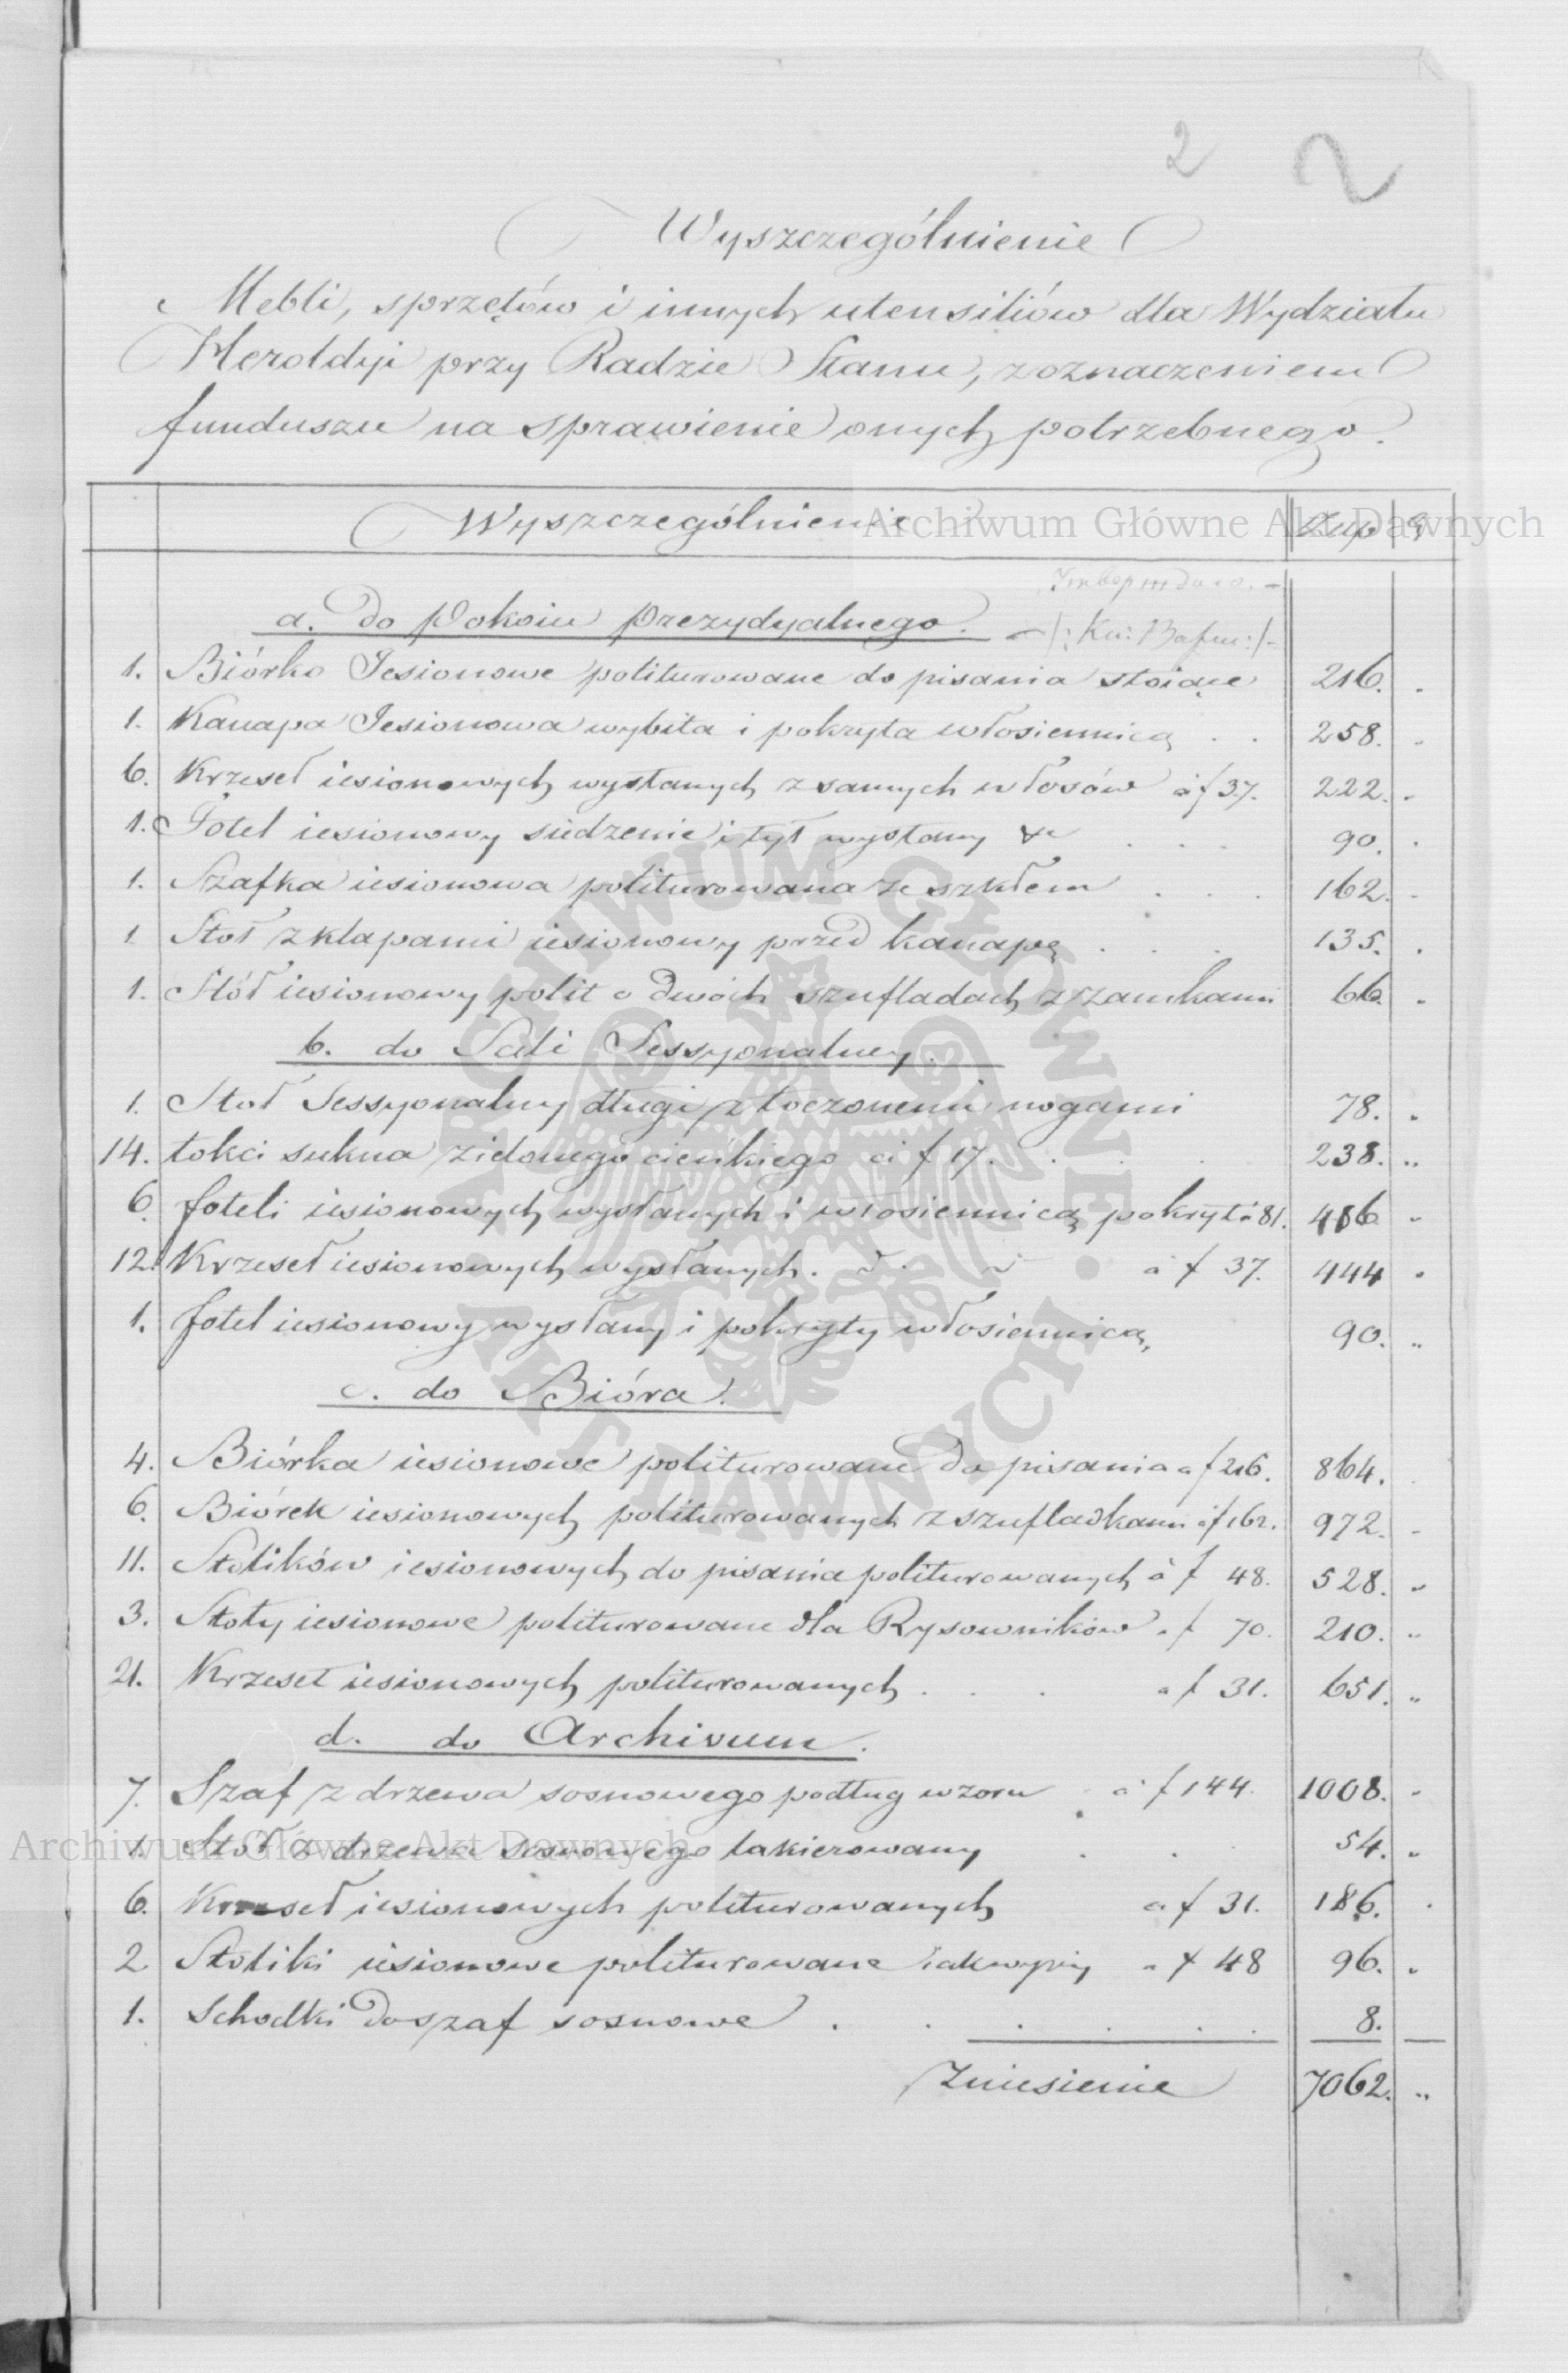 2 2
Wyszczególnienie
Mebli, sprzętów i innych utensiliów dla Wydziału
Heroldyi przy Radzie Stanu, z oznaczeniem
funduszu na sprawienie onych potrzebnego.
Wyszczególnienie Złup g
a. Do Pokoiu Prezydyalnego.
1. Biórko Jesionowe politurowane do pisania stoiące 216. .
1. Kanapa Jesionowa wybita i pokryta włosiennicą . . 258. .
6. Krzeseł iesionowych wysłanych z samych włosów à f 37. 222. .
1. Fotel iesionowy siedzenie i tył wysłany & . . . 90. .
1. Szafka iesionowa politurowana ze szkłem . . . 162. .
1 Stoł z klapami iesionowy przed kanapę . . . 135. .
1. Stół iesionowy polit o dwóch szufladach z zamkami 66. .
b. do Sali Sessyonalney.
1. Stoł Sessyonalny długi z toczonemi nogami 78. .
14. łokci sukna zielonego cieńkiego à f 17. . . . 238. „
6. foteli iesionowych wysłanych i włosiennicą pokryt à 81. 486 „
12. Krzeseł iesionowych wysłanych. à f 37. 444 .
1. fotel iesionowy wysłany i pokryty włosiennicą, 90. „
c. do Bióra.
4. Biórka iesionowe politurowane Do pisania à f 216. 864.
6. Biórek iesionowych politurowanych z szufladkami à f 162. 972. .
11. Stolików iesionowych do pisania politurowanych à f 48. 528. „
3. Stoły iesionowe politurowane dla Rysowników à f 70. 210. „
21. Krzeseł iesionowych politurowanych . . . à f 31. 651. „
d. do Archivum.
7. Szaf z drzewa sosnowego podług wzoru à f 144. 1008. .
1. Stoł z drzewa sosnowego lakierowany . . . 54. „
6. Krzeseł iesionowych politurowanych à f 31. 186. .
2 Stoliki iesionowe politurowane à f 48 96. „
1. Schodki Do szaf sosnowe . . . . . . 8.
Zniesienie 7062. „
Archiwum Główne Akt Dawnych
ARCHIWUM GŁÓWNE AKT DAWNYCH
Archiwum Główne Akt Dawnych